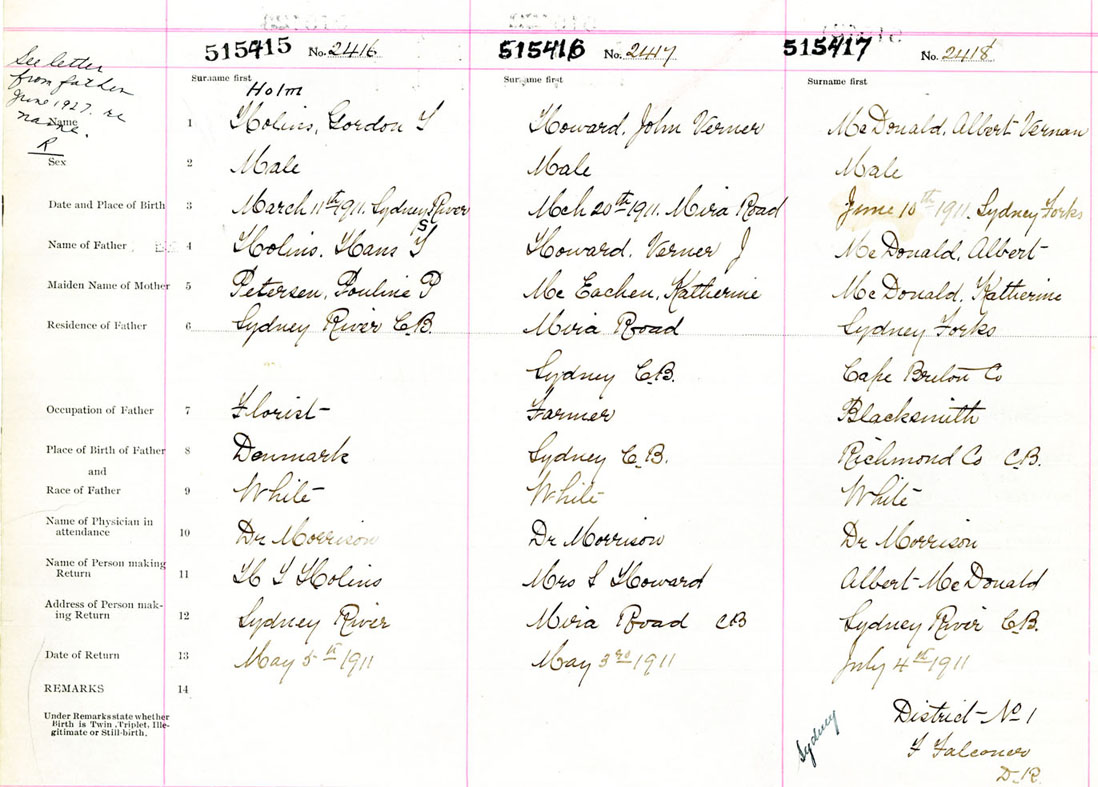 See letter
from father
June 1927. re
name.
R
515415 No. 2416
Surname first
Holm
Name 1 Holins, Gordon S
Sex 2 Male
Date and Place of Birth 3 March 11th 1911. Sydney River
Name of Father 4 Holins. Hans S
Maiden Name of Mother 5 Petersen, Pouline P
Residence of Father 6 Sydney River C.B.
Occupation of Father 7 Florist
Place of Birth of Father 8 Denmark
and
Race of Father 9 White
Name of Physician in
attendance 10 Dr Morrison
Name of Person making
Return 11 H S Holins
Address of Person mak-
ing Return 12 Sydney River
Date of Return 13 May 5th 1911
REMARKS 14
Under Remarks state whether
Birth is Twin, Triplet, Ille-
gitimate or Still-birth.
515416 No. 2447
Surname first
Howard, John Verner
Male
Mch 20th 1911. Mira Road
Howard, Verner J
Mc Eachen, Katherine
Mira Road
Sydney C.B.
Farmer
Sydney C.B.
White
Dr Morrison
Mrs S Howard
Mira Road CB
May 3rd 1911
515417 No. 2418
Surname first
McDonald, Albert Vernan
Male
June 10th 1911. Sydney Forks
McDonald, Albert
McDonald, Katherine
Sydney Forks
Cape Breton Co
Blacksmith
Richmond Co C.B.
White
Dr Morrison
Albert McDonald
Sydney River C.B.
July 4th 1911
District No 1
F Falconer
D.R.
Sydney